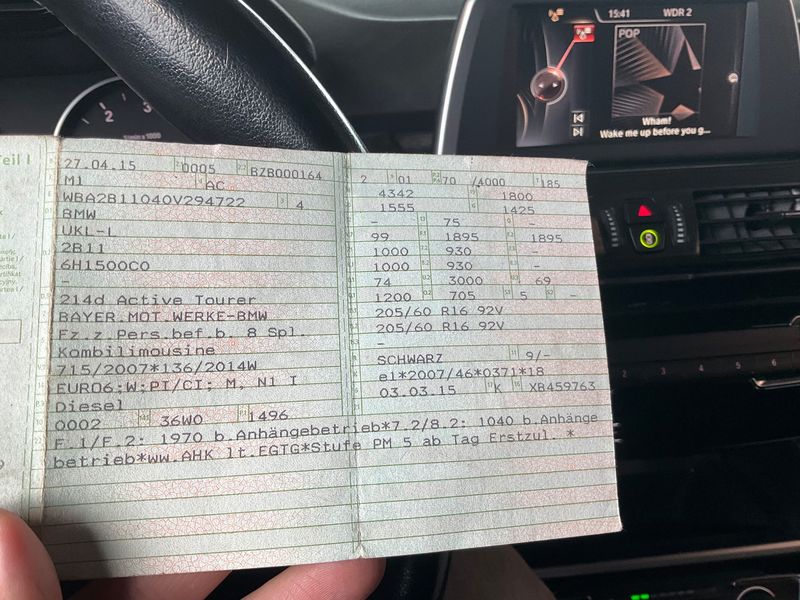 15:41 WDR 2
POP
Wham!
Wake me up before you g...
2 3
Teil I
27.04.15 0005 BZB000164
M1 AC
WBA2B11040V294722 4
BMW
UKL-L
2B11
6H1500C0
-
214d Active Tourer
BAYER.MOT.WERKE-BMW
Fz.z.Pers.bef.b. 8 Spl.
Kombilimousine
715/2007*136/2014W
EURO6;W;PI/CI; M, N1 I
Diesel
0002 36W0 1496
2 01 70 /4000 185
4342 1800
1555 1425
- 75 -
99 1895 1895
1000 930 -
1000 930 -
74 3000 69
1200 705 5 -
205/60 R16 92V
205/60 R16 92V
-
SCHWARZ 9/-
e1*2007/46*0371*18
03.03.15 K XB459763
F.1/F.2: 1970 b.Anhängebetrieb*7.2/8.2: 1040 b.Anhänge
betrieb*ww.AHK lt.EGTG*Stufe PM 5 ab Tag Erstzul. *
2 3 4 5 6